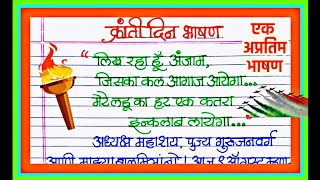 क्रांती दिन भाषण
एक
अप्रतिम
भाषण
"लिख रहा हूँ, अंजाम,
जिसका कल आगाज आयेगा...
मेरे लहू का हर एक कतरा
इन्कलाब लायेगा..."
अध्यक्ष महाशय, पुज्य गुरुजनवर्ग
आणि माझ्या बालमित्रांनो। आज ९ ऑगस्ट म्हणजे